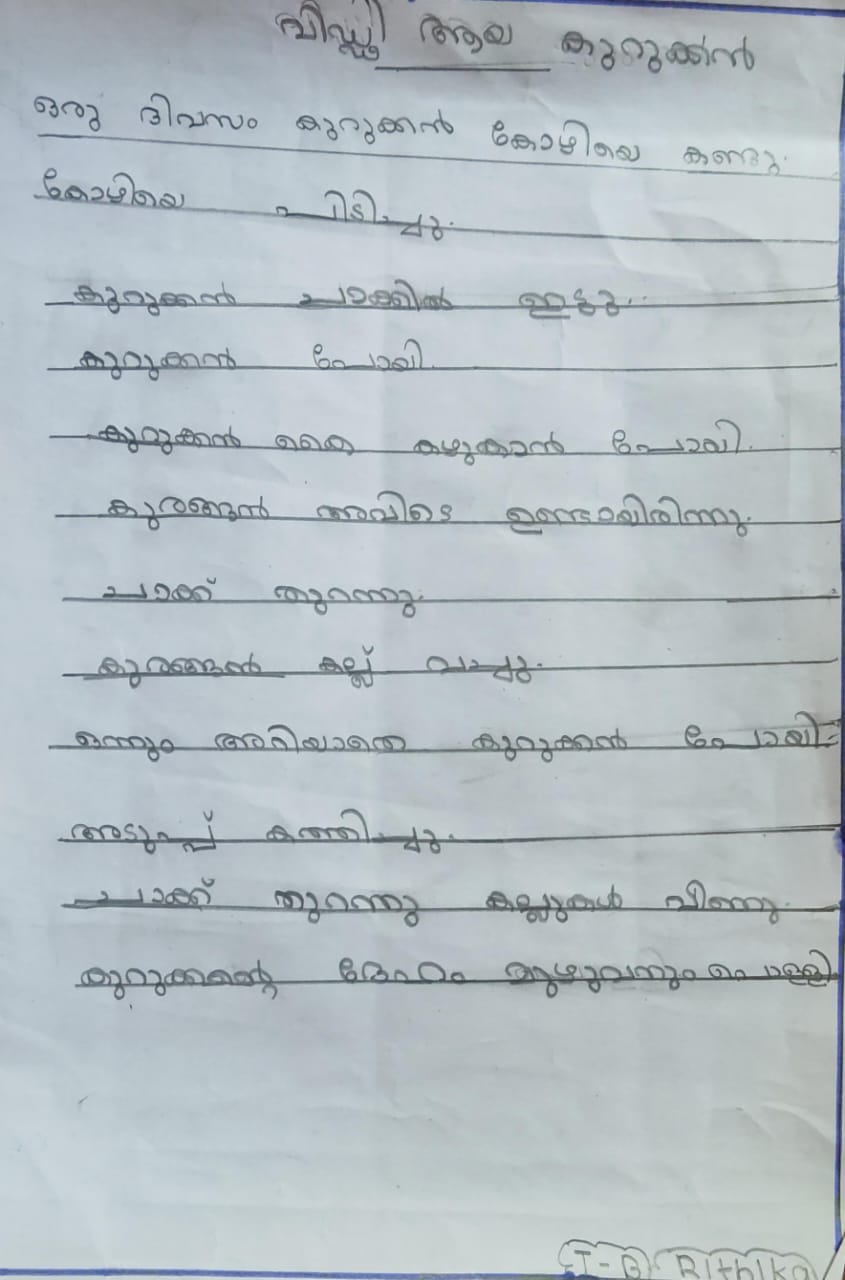 വിഡ്ഢി ആയ കുറുക്കൻ
ഒരു ദിവസം കുറുക്കൻ കോഴിയെ കണ്ടു.
കോഴിയെ പിടിച്ചു.
കുറുക്കൻ ചാക്കിൽ ഇട്ടു.
കുറുക്കൻ പോയി.
കുറുക്കൻ കൈ കഴുകാൻ പോയി.
കുരങ്ങൻ അവിടെ ഉണ്ടായിരിന്നു.
ചാക്ക് തുറന്നു.
കുരങ്ങൻ കല്ല് വച്ചു.
ഒന്നും അറിയാതെ കുറുക്കൻ പോയി.
അടുപ്പ് കത്തിച്ചു.
ചാക്ക് തുറന്നു കല്ലുകൾ വീണു.
കുറുക്കന്റെ ദേഹം മുഴുവനും പൊള്ളി
Rithika